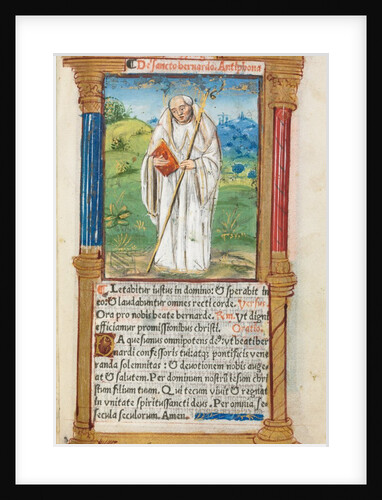 De sancto bernardo. Antiphona
Letabitur iustus in domino: & sperabit in
eo: & laudabuntur omnes recti corde. Versus.
Ora pro nobis beate bernarde. Ut digni
efficiamur promissionibus christi. Oratio.
DA quesumus omnipotens deꝰ ut beati ber
nardi confessoris tui atqꝫ pontificis vene
randa solemnitas: & deuotionem nobis auge
at & salutem. Per dominum nostrū iesum chri
stum filium tuum. Qui tecum viuit & regnat
in vnitate spiritussancti deus. Per omnia se
cula seculorum. Amen.